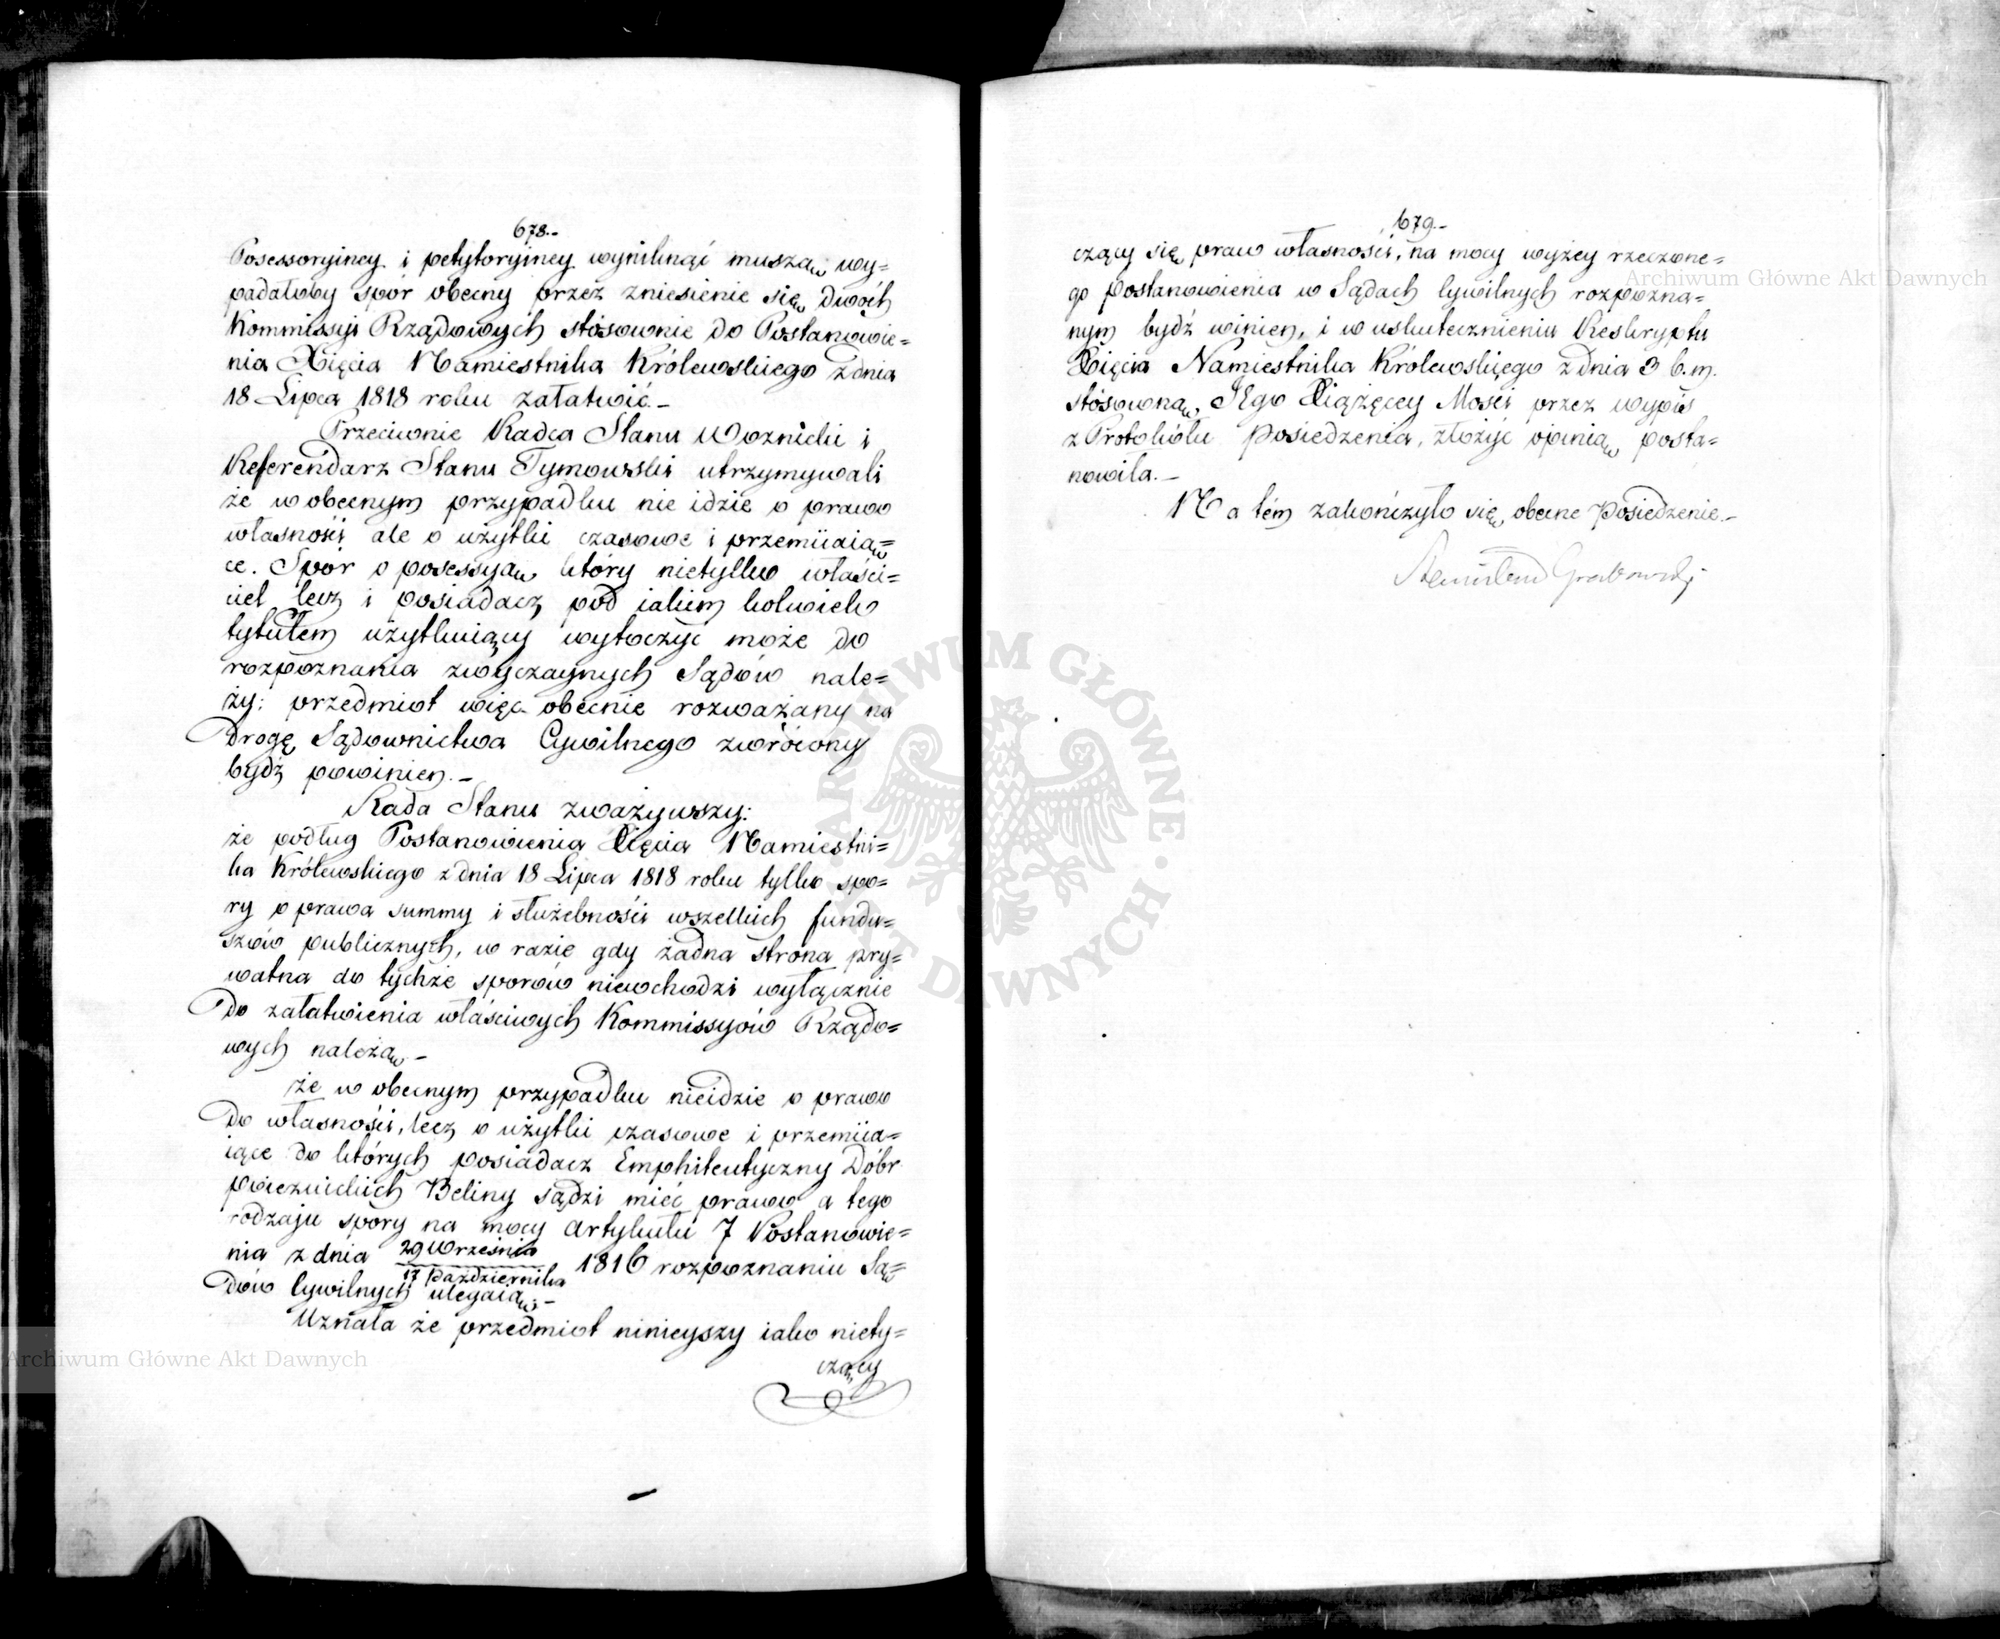 678.-
Posessoryiney i petytoryiney wyniknąć muszą, wy=
padałoby spor obecny przez zniesienie się dwóch
Kommissyi Rządowych stósownie do Postanowie=
nia Xięcia Namiestnika Królewskiego z dnia
18 Lipca 1818 roku załatwić.-
Przeciwnie Radca Stanu Woznicki i
Referendarz Stanu Tymowski utrzymywali
że w obecnym przypadku nie idzie o prawo
własności ale o użytki czasowe i przemiiaią=
ce. Spór o posessyą, który nietylko właści=
ciel lecz i posiadacz pod iakiem kolwiek
tytułem użytkuiący wytoczyć może do
rozpoznania zwyczaynych Sądów nale=
ży: przedmiot więc obecnie rozważany na
drogę Sądownictwa Cywilnego zwrócony
bydź powinien.-
Rada Stanu zważywszy:
że podług Postanowienia Xięcia Namiestni=
ka Królewskiego z dnia 18 Lipca 1818 roku tylko spo=
ry o prawa summy i służebności wszelkich fundu=
szów publicznych, w razie gdy żadna strona pry=
watna do tychże sporów niewchodzi wyłącznie
do załatwienia właściwych Kommissyów Rządo=
wych należą.-
że w obecnym przypadku nieidzie o prawo
do własności, lecz o użytki czasowe i przemiia=
iące do których posiadacz Emphiteutyczny Dóbr
poiezuickich Beliny sądzi mieć prawo a tego
rodzaju spory na mocy Artykułu 7 Postanowie=
nia z dnia 29 Września
17 Października 1816 rozpoznaniu Są=
dów Cywilnych ulegaią.-
Uznała że przedmiot ninieyszy iako niety=
czący
679.-
czący się praw własności, na mocy wyżey rzeczone=
go Postanowienia w Sądach Cywilnych rozpozna=
nym bydź winien, i w uskutecznieniu Reskryptu
Xięcia Namiestnika Królewskiego z dnia 3 b.m.
stósowną, Jego Xiążęcey Mości przez wypis
z Protokółu Posiedzenia, złożyć opinią posta=
nowiła.-
Na tém zakończyło się obecne Posiedzenie.-
Stanisław Grabowski
Archiwum Główne Akt Dawnych
Archiwum Główne Akt Dawnych
ARCHIWUM GŁÓWNE · AKT DAWNYCH ·